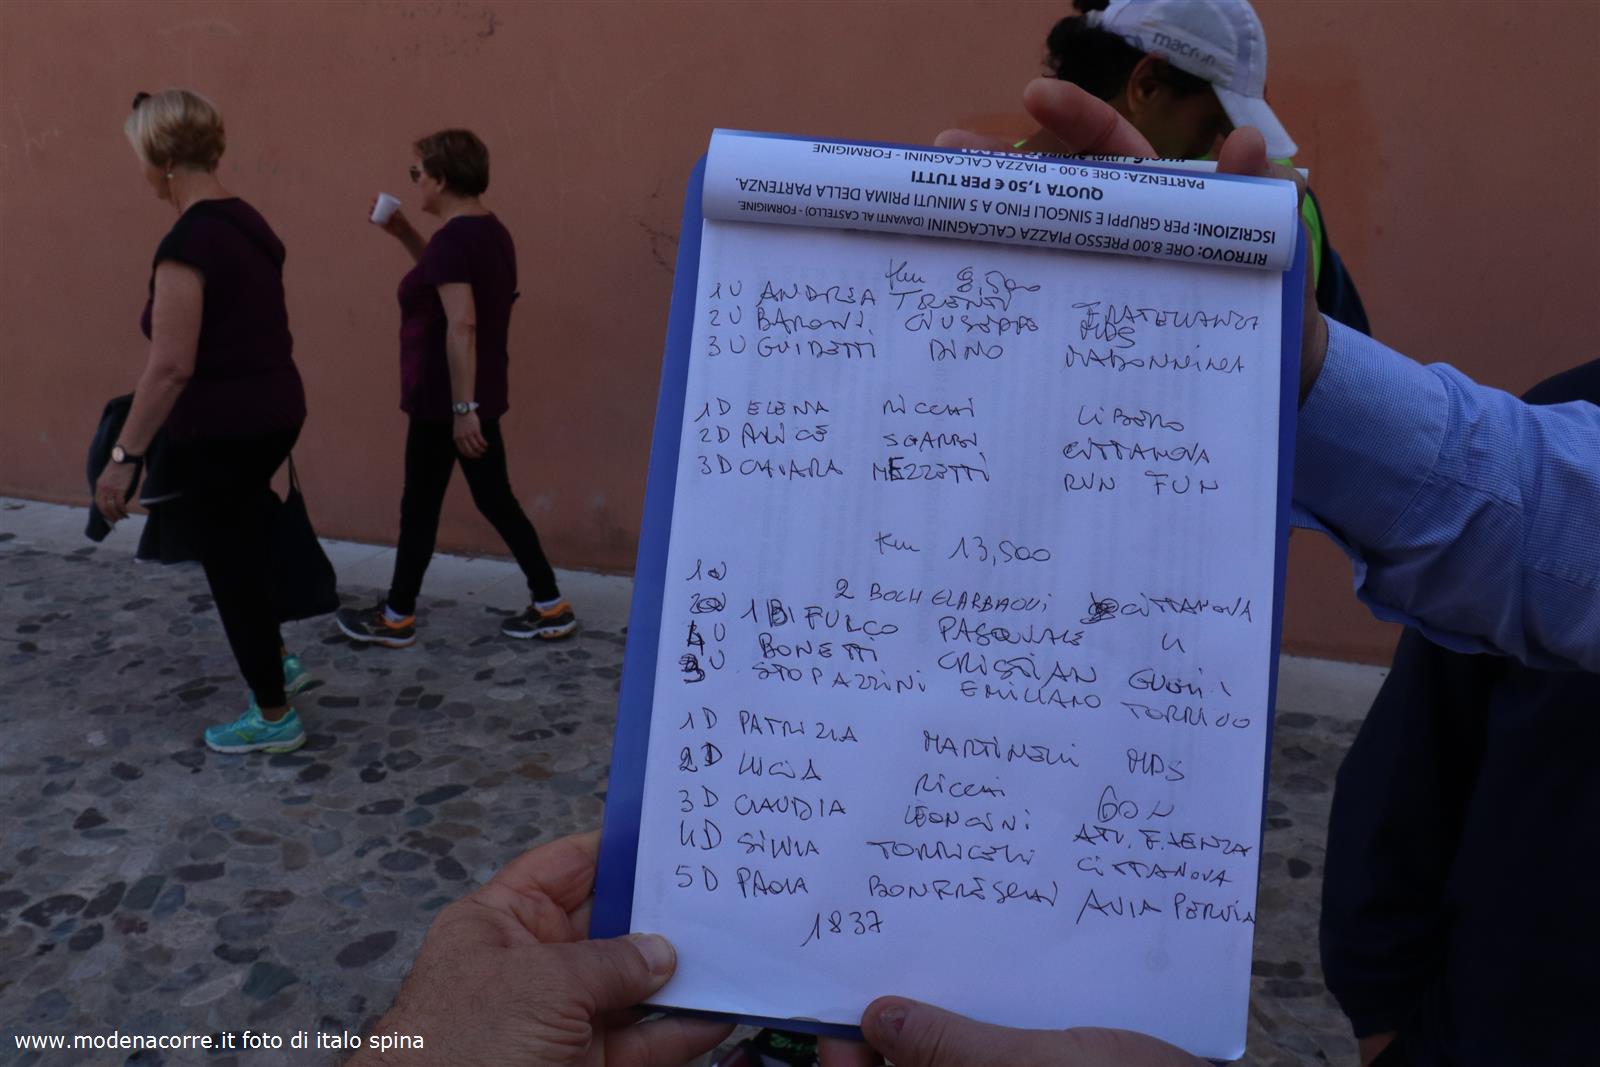 macron
PARTENZA: ORE 9.00 - PIAZZA CALCAGNINI - FORMIGINE
QUOTA 1,50 € PER TUTTI
ISCRIZIONI: PER GRUPPI E SINGOLI FINO A 5 MINUTI PRIMA DELLA PARTENZA.
RITROVO: ORE 8.00 PRESSO PIAZZA CALCAGNINI (DAVANTI AL CASTELLO) - FORMIGINE.
Km 8,500
1U ANDREA TRENTI FRATELLANZA
2U BARONI GIUSEPPE MDS
3U GUIDETTI DINO MADONNINA
1D ELENA RICCHI LIBERO
2D ALICE SGARBI CITTANOVA
3D CHIARA MEZZETTI RUN FUN
Km 13,500
1U
2U 2 BOCH ELARBAOUI CITTANOVA
1 BIFULCO PASQUALE U
4U BONETTI CRISTIAN GUGLI
3U STOPAZZINI EMILIANO TORRIDO
1D PATRIZIA MARTINELLI MDS
2D LUCIA RICCHI
3D CLAUDIA LEONCINI ATL. FAENZA
4D SILVIA TORRICELLI CITTANOVA
5D PAOLA BONFRESCHI AVIA PERVIA
1837
www.modenacorre.it foto di italo spina